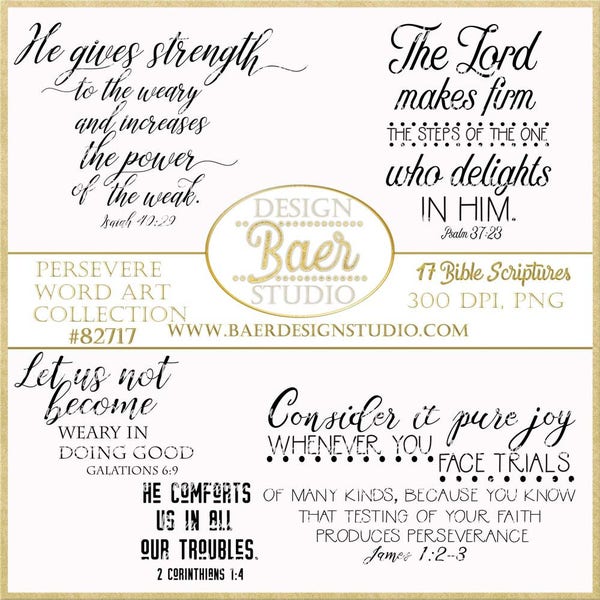 He gives strength
to the weary
and increases
the power
of the weak.
Isaiah 40:29
The Lord
makes firm
THE STEPS OF THE ONE
who delights
IN HIM.
Psalm 37:23
DESIGN
Baer
STUDIO
PERSEVERE
WORD ART
COLLECTION
#82717
17 Bible Scriptures
300 DPI, PNG
WWW.BAERDESIGNSTUDIO.COM
Let us not
become
WEARY IN
DOING GOOD
GALATIONS 6:9
Consider it pure joy
WHENEVER YOU
FACE TRIALS
OF MANY KINDS, BECAUSE YOU KNOW
THAT TESTING OF YOUR FAITH
PRODUCES PERSEVERANCE
James 1:2-3
HE COMFORTS
US IN ALL
OUR TROUBLES.
2 CORINTHIANS 1:4